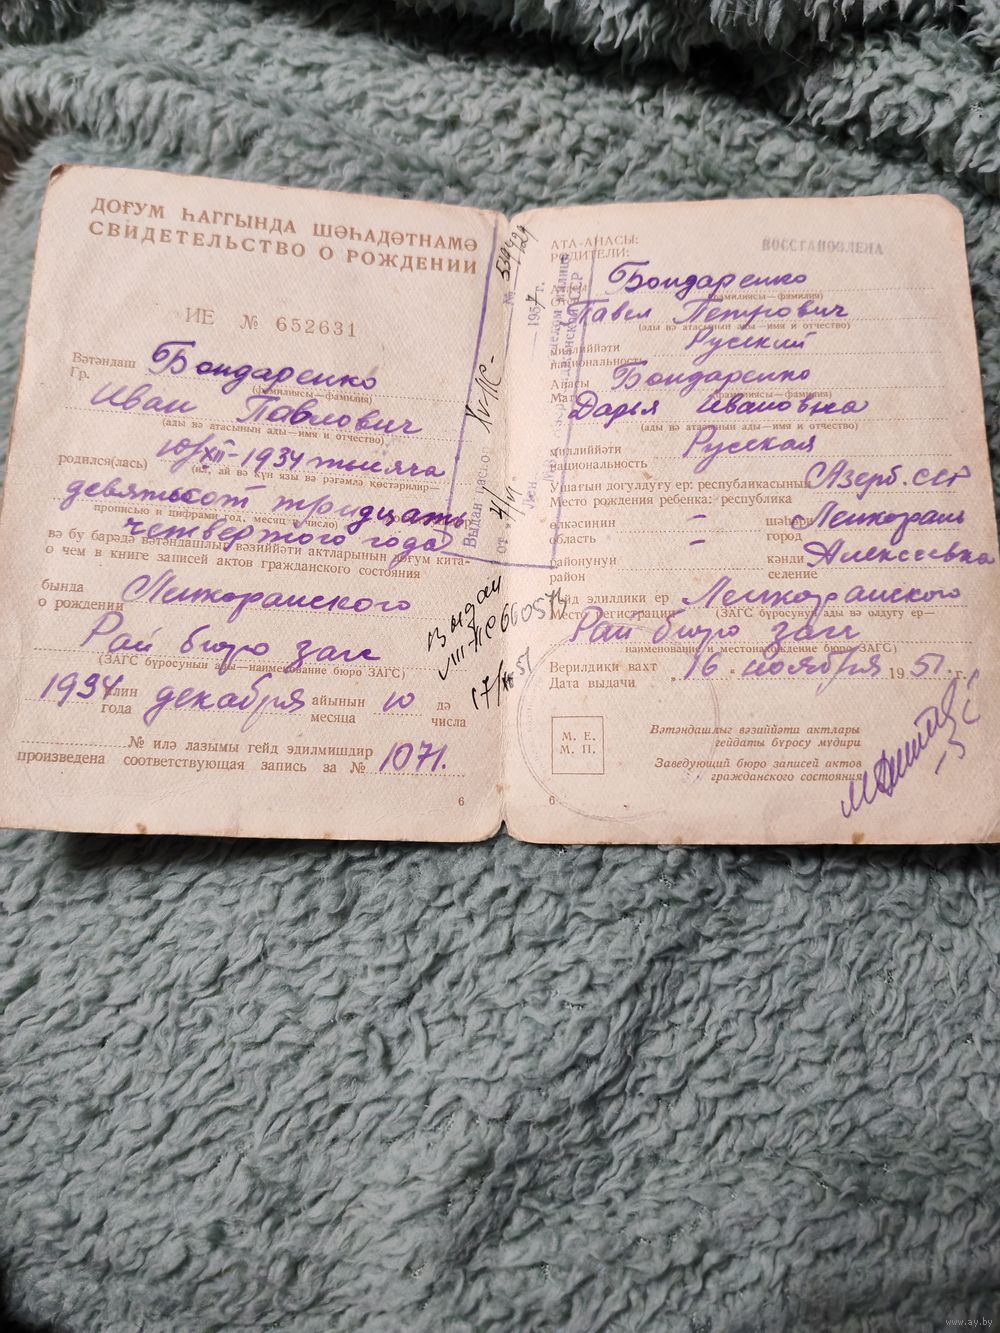 ДОҒУМ ҺАГГЫНДА ШӘҺАДӘТНАМӘ
СВИДЕТЕЛЬСТВО О РОЖДЕНИИ
ИЕ № 652631
Вәтәндаш
Гр. Бондаренко
(фамилиясы—фамилия)
Иван Павлович
(ады вә атасынын ады—имя и отчество)
родился(лась) 10/XII-1934 тысяча
(ил, ай вә күн язы вә рәгәмлә көстәрилир—
девятьсот тридцать
прописью и цифрами год, месяц и число)
четвертого года
вә бу барәдә вәтәндашлыг вәзиййәти актларынын доғум кита-
о чем в книге записей актов гражданского состояния
бында
о рождении Ленкоранского
Рай бюро загс
(ЗАГС бүросунын ады—наименование бюро ЗАГС)
1934 илин
года декабря айынын
месяца 10 дә
числа
№ илә лазымы гейд эдилмишдир
произведена соответствующая запись за № 1071.
6
Выдан паспорт
№ 539429
от 4/VI 1957 г.
Выдан
VIII-ПС 660573
17/XI 51
АТА-АНАСЫ:
РОДИТЕЛИ:
ВОССТАНОВЛЕНА
Бондаренко
(фамилиясы—фамилия)
Павел Петрович
(ады вә атасынын ады—имя и отчество)
миллиййәти
национальность Русский
Анасы
Мать Бондаренко
(фамилиясы—фамилия)
Дарья Ивановна
(ады вә атасынын ады—имя и отчество)
миллиййәти
национальность Русская
Ушағын доғулдуғу ер: республикасынын
Место рождения ребенка: республика Азерб. ССР
өлкәсинин
область – шәһәри
город Ленкорань
районунун
район – кәнди
селение Алексеевка
Гейд эдилдики ер
Место регистрации Ленкоранского
(ЗАГС бүросунун ады вә олдуғу ер—
Рай бюро загс
наименование и местонахождение бюро ЗАГС)
Верилдики вахт
Дата выдачи „16“ ноября 1951 г.
М. Е.
М. П.
Вәтәндашлыг вәзиййәти актлары
гейдаты бүросу мүдири
Заведующий бюро записей актов
гражданского состояния
6
www.ay.by